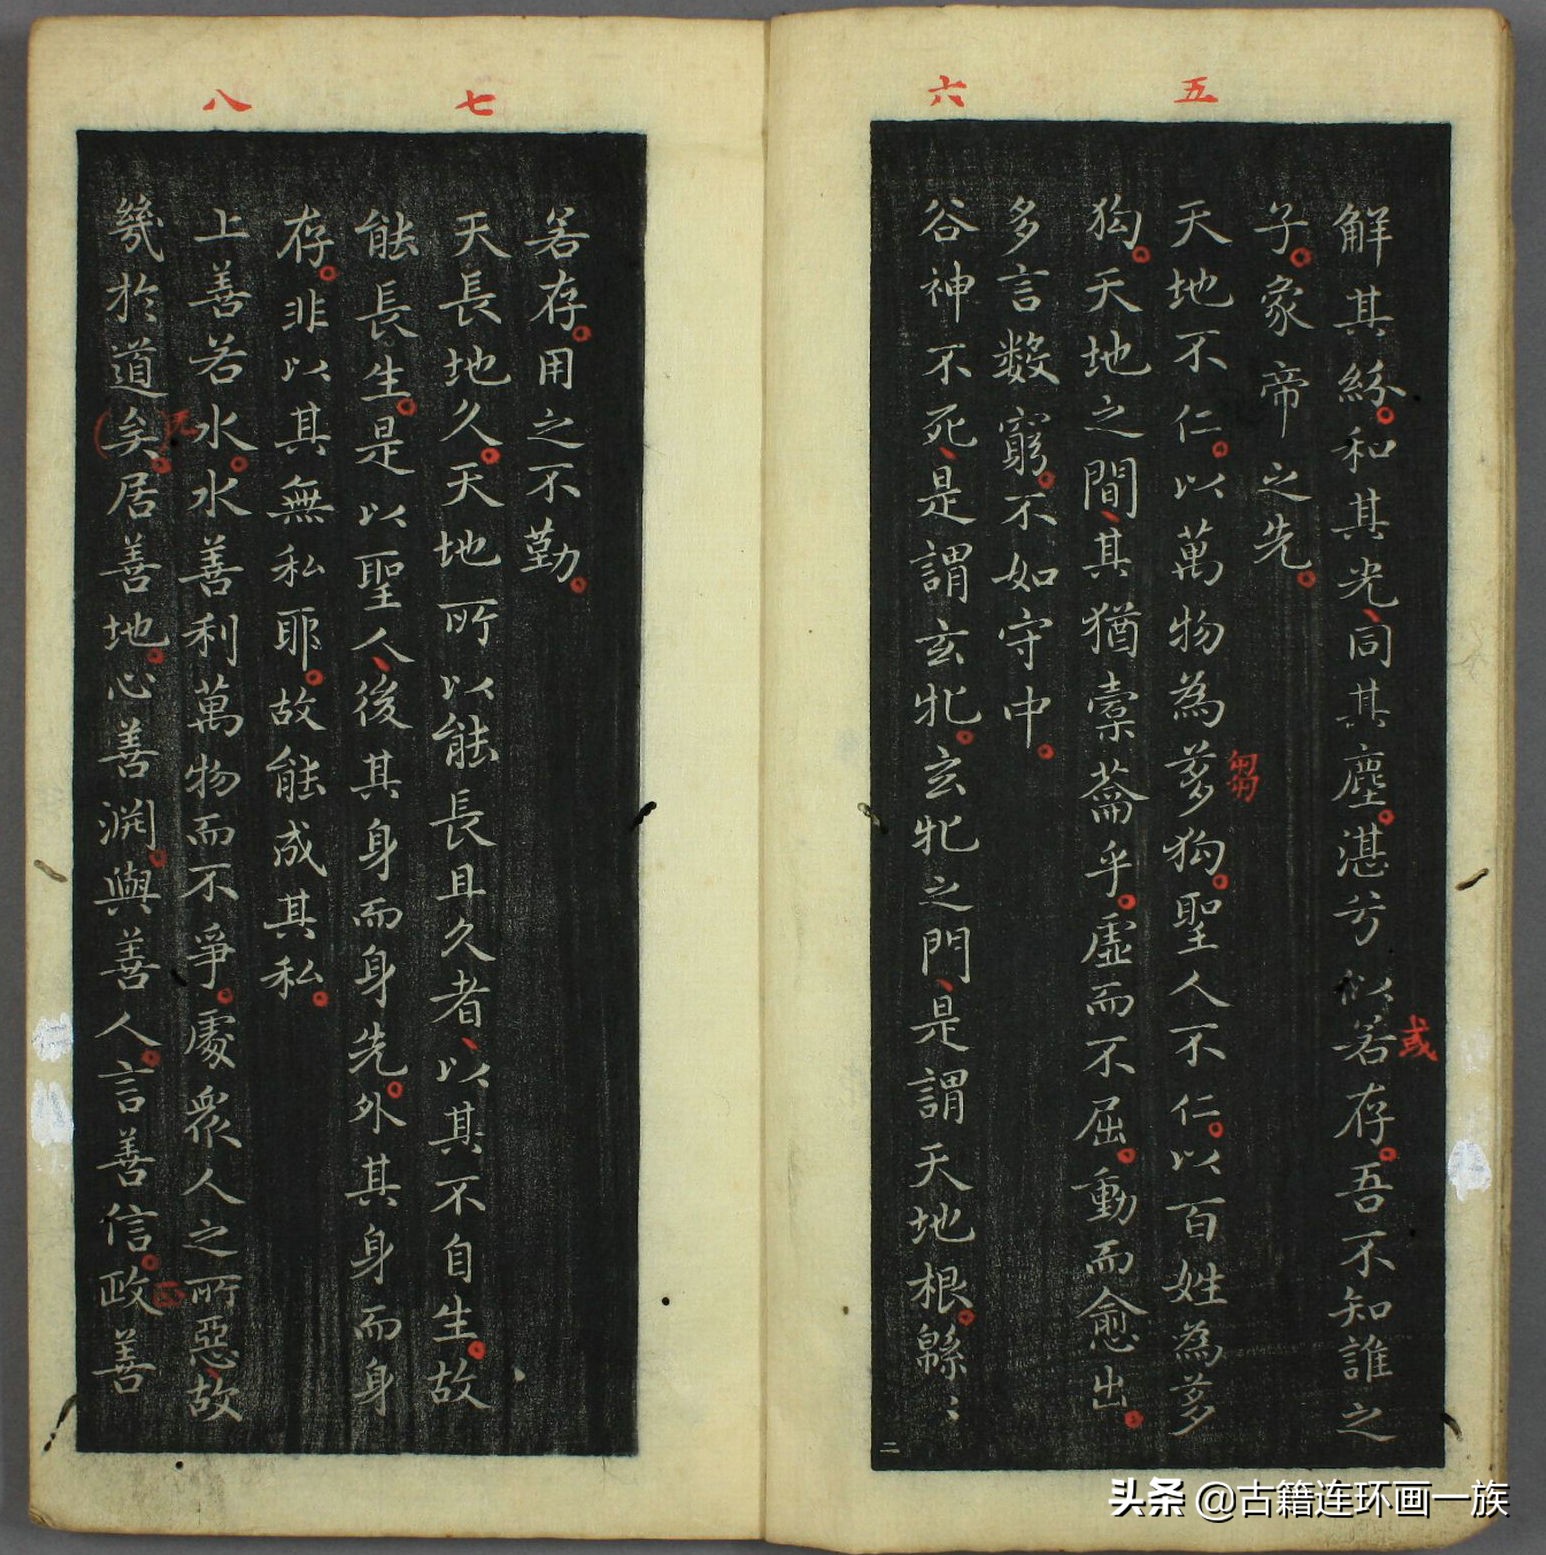 五
六
解其紛。和其光、同其塵。湛兮似若存。吾不知誰之
或
子。象帝之先。
天地不仁。以萬物為芻狗。聖人不仁。以百姓為芻
芻
狗。天地之間、其猶橐籥乎。虛而不屈。動而愈出。
多言數窮。不如守中。
谷神不死、是謂玄牝。玄牝之門、是謂天地根。緜〻
二
七
八
若存。用之不勤。
天長地久。天地所以能長且久者、以其不自生。故
能長生。是以聖人、後其身而身先。外其身而身
存。非以其無私耶。故能成其私。
上善若水。水善利萬物而不爭。處衆人之所惡、故
幾於道矣。居善地。心善淵。與善人。言善信。政善
头条 @古籍连环画一族